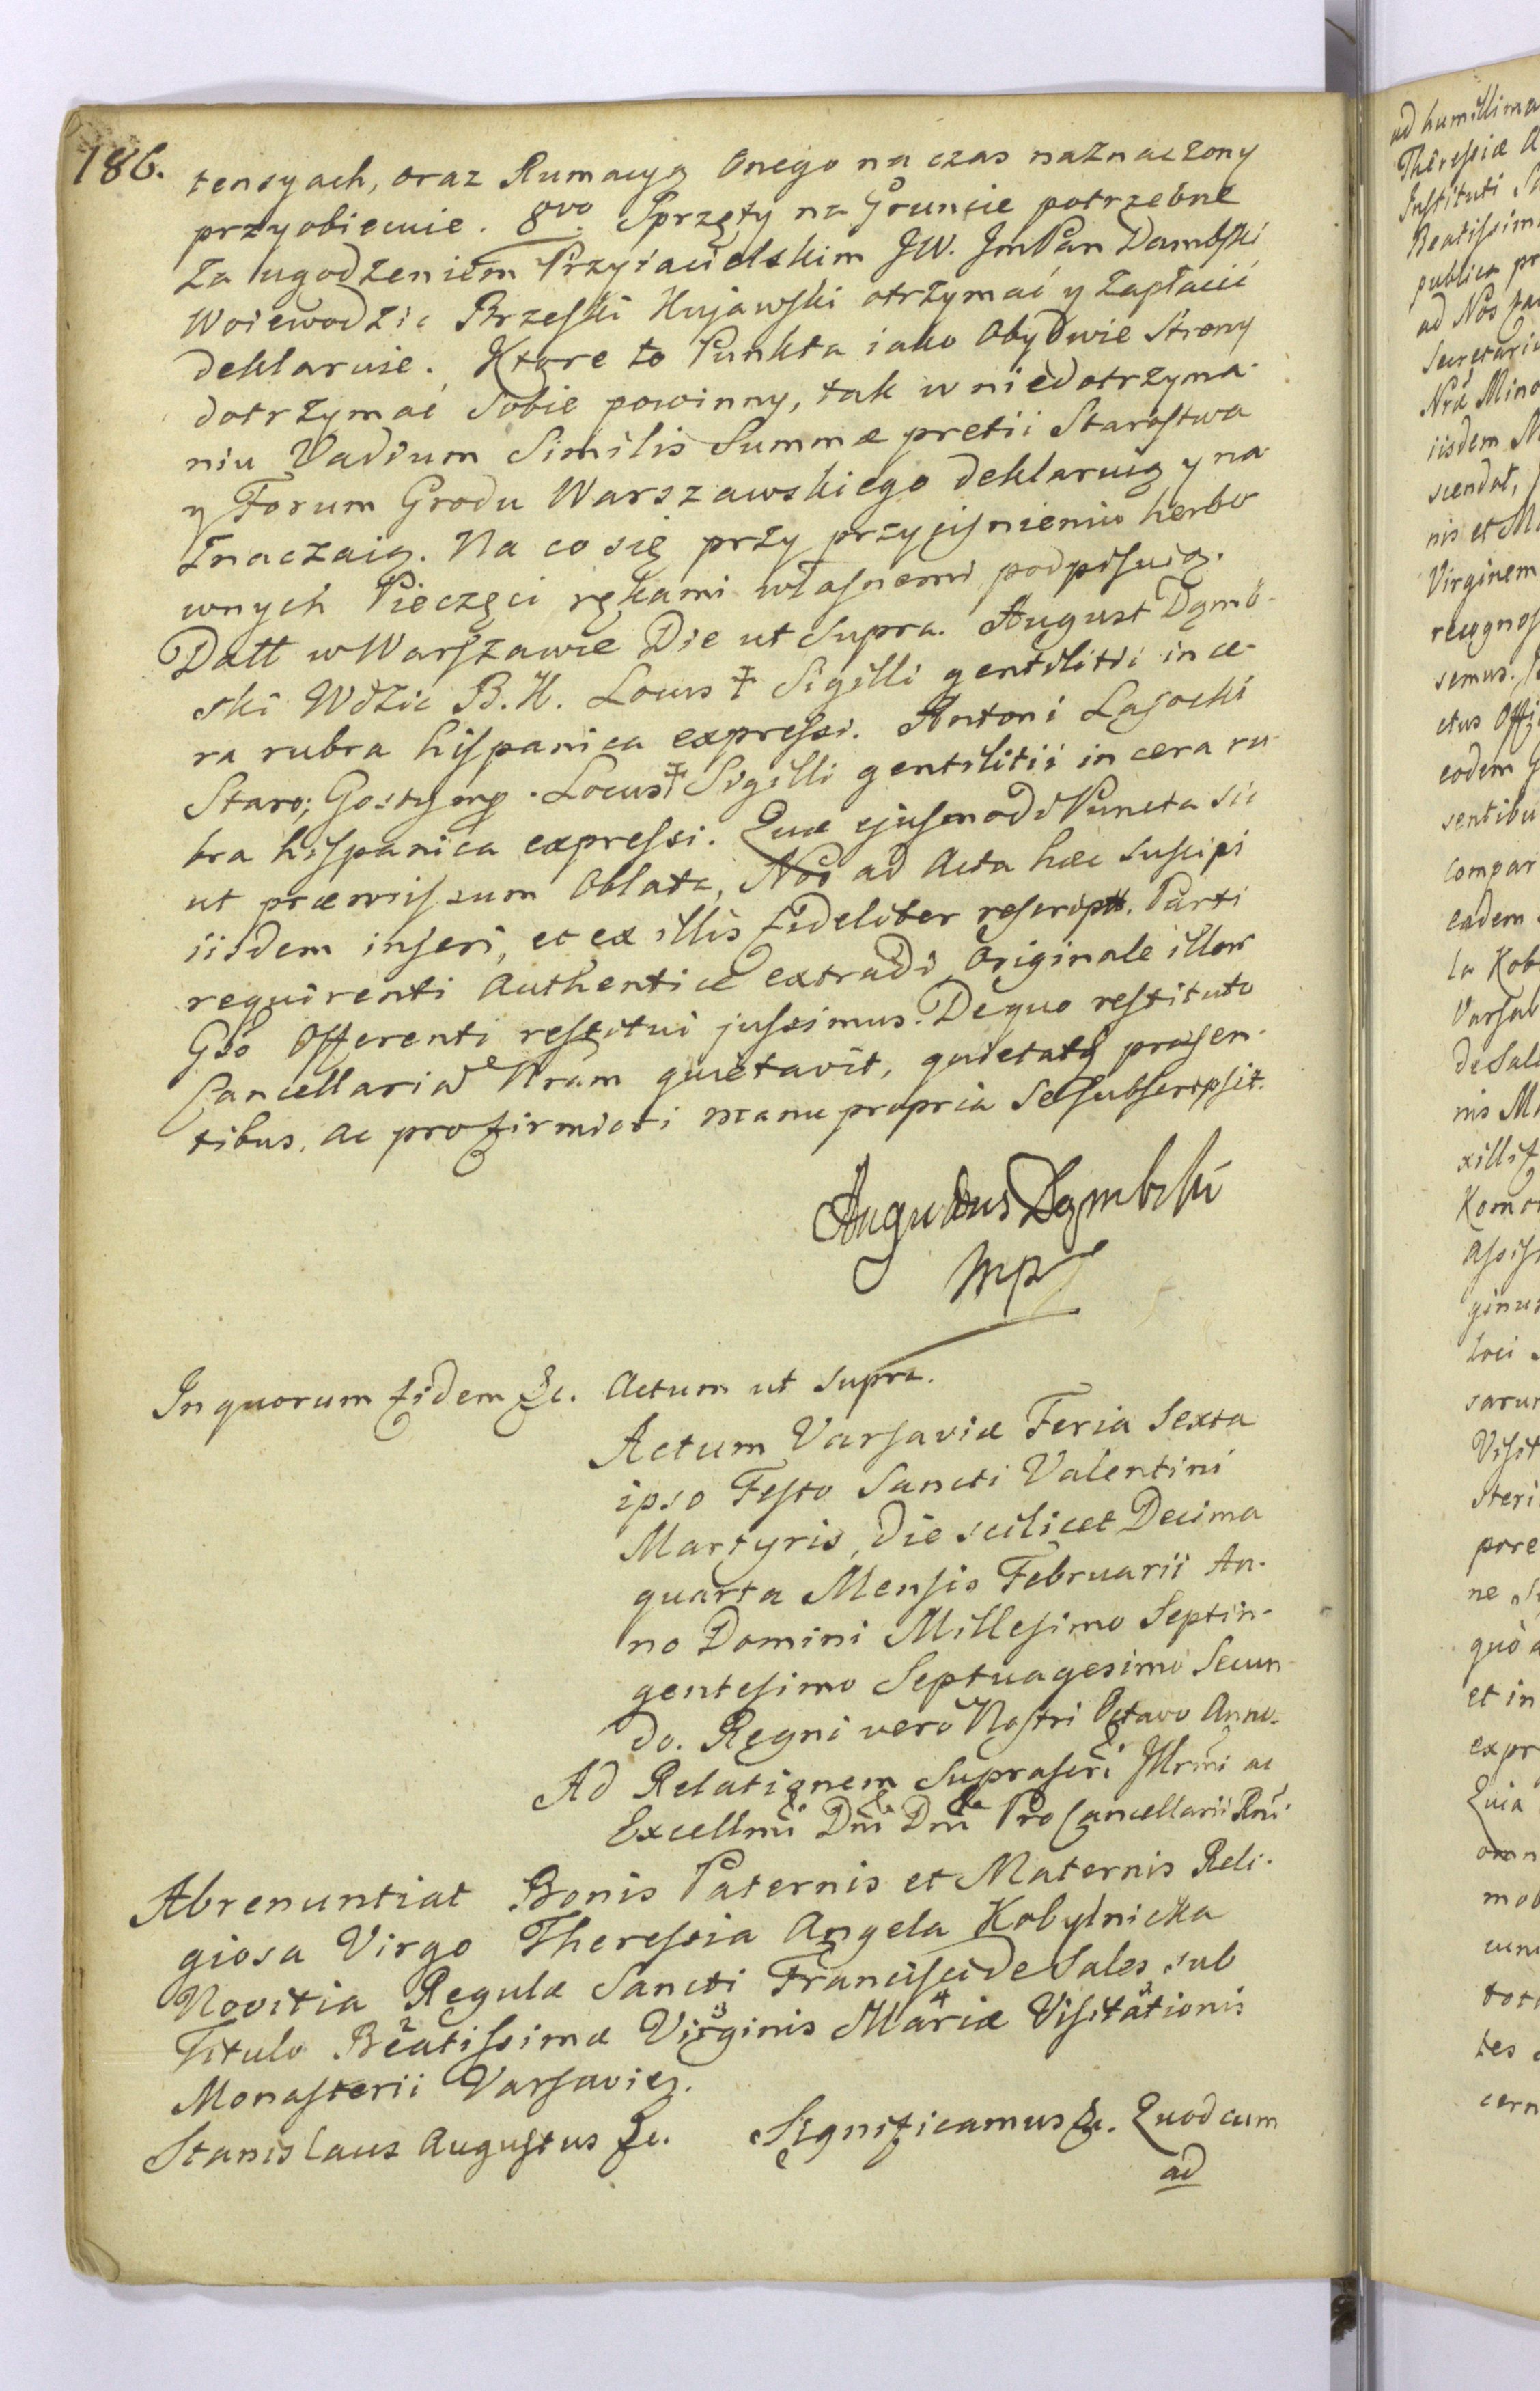 186.
tensyach, oraz Rumacyą Onego na czas naznaczony
przyobiecuie. 8vo. Sprzęty na Gruncie potrzebne
Za ugodzeniem Przyiacielskim JW. JmPan Dambski
Woiewodzic Brzeski Kujawski otrzymać y zapłacić
deklaruie. Ktore to Punkta iako Obydwie Strony
dotrzymać Sobie powinny, tak w niedotrzyma-
niu Vadium Similis Summæ pretii Starostwa
y Forum Grodu Warszawskiego deklaruią y na-
znaczaią. Na co się przy przycisnieniu herbo
wnych Pieczęci rękami własnemi podpisuią.
Datt w Warszawie Die ut Supra. August Dąmb-
ski Wdzic B. K. Locus ‡ Sigilli gentilitii in ce-
ra rubra hispanica expressi. Antoni Lasocki
Staro; Gosty mp. Locus ‡ Sigilli gentilitii in cera ru-
bra hispanica expressi. Quæ ejusmodi Puncta sic
ut præmissum Oblata, Nos ad Acta hæc suscipi
iisdem inseri, et ex illis fideliter rescriptt. Parti
requirenti Authentice extradi, Originale illor
Gso Offerenti restitui jussimus. De quo restituto
Cancellariã Nram quietavit, quietatq præsen-
tibus, ac pro firmiori manu propria se subscripsit.
Augustus Dąmbski
mp
In quorum fidem &c. Actum ut supra.
Actum Varsaviæ Feria Sexta
ipso Festo Sancti Valentini
Martyris, die scilicet Decima
quarta Mensis Februarii An-
no Domini Millesimo Septin-
gentesimo Septuagesimo Secun-
do. Regni vero Nostri Octavo Anno.
Ad Relationem Suprascri Illrmi ac
Excellmi Dni Dni Pro Cancellarii Rni
Abrenuntiat Bonis Paternis et Maternis Reli-
giosa Virgo Theressia Angela Kobylnicka
Novitia Regulæ Sancti Francisci de Sales sub
Titulo Beatissimæ Virginis Mariæ Visitationis
Monasterii Varsavien.
Stanislaus Augustus &c. Significamus &c. Quod cum
ad